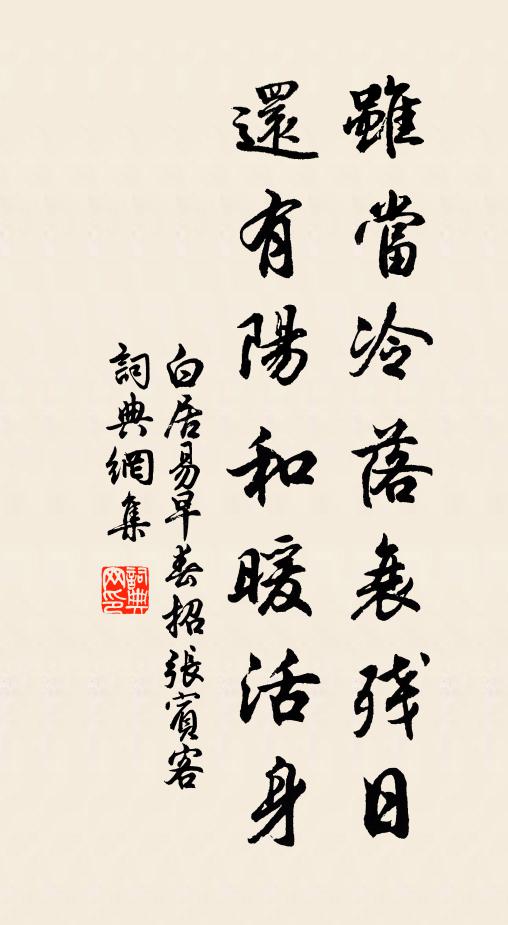 雖當冷落衰殘日
還有陽和暖活身
白居易早春招張賓客
詞典網集
詞典網印